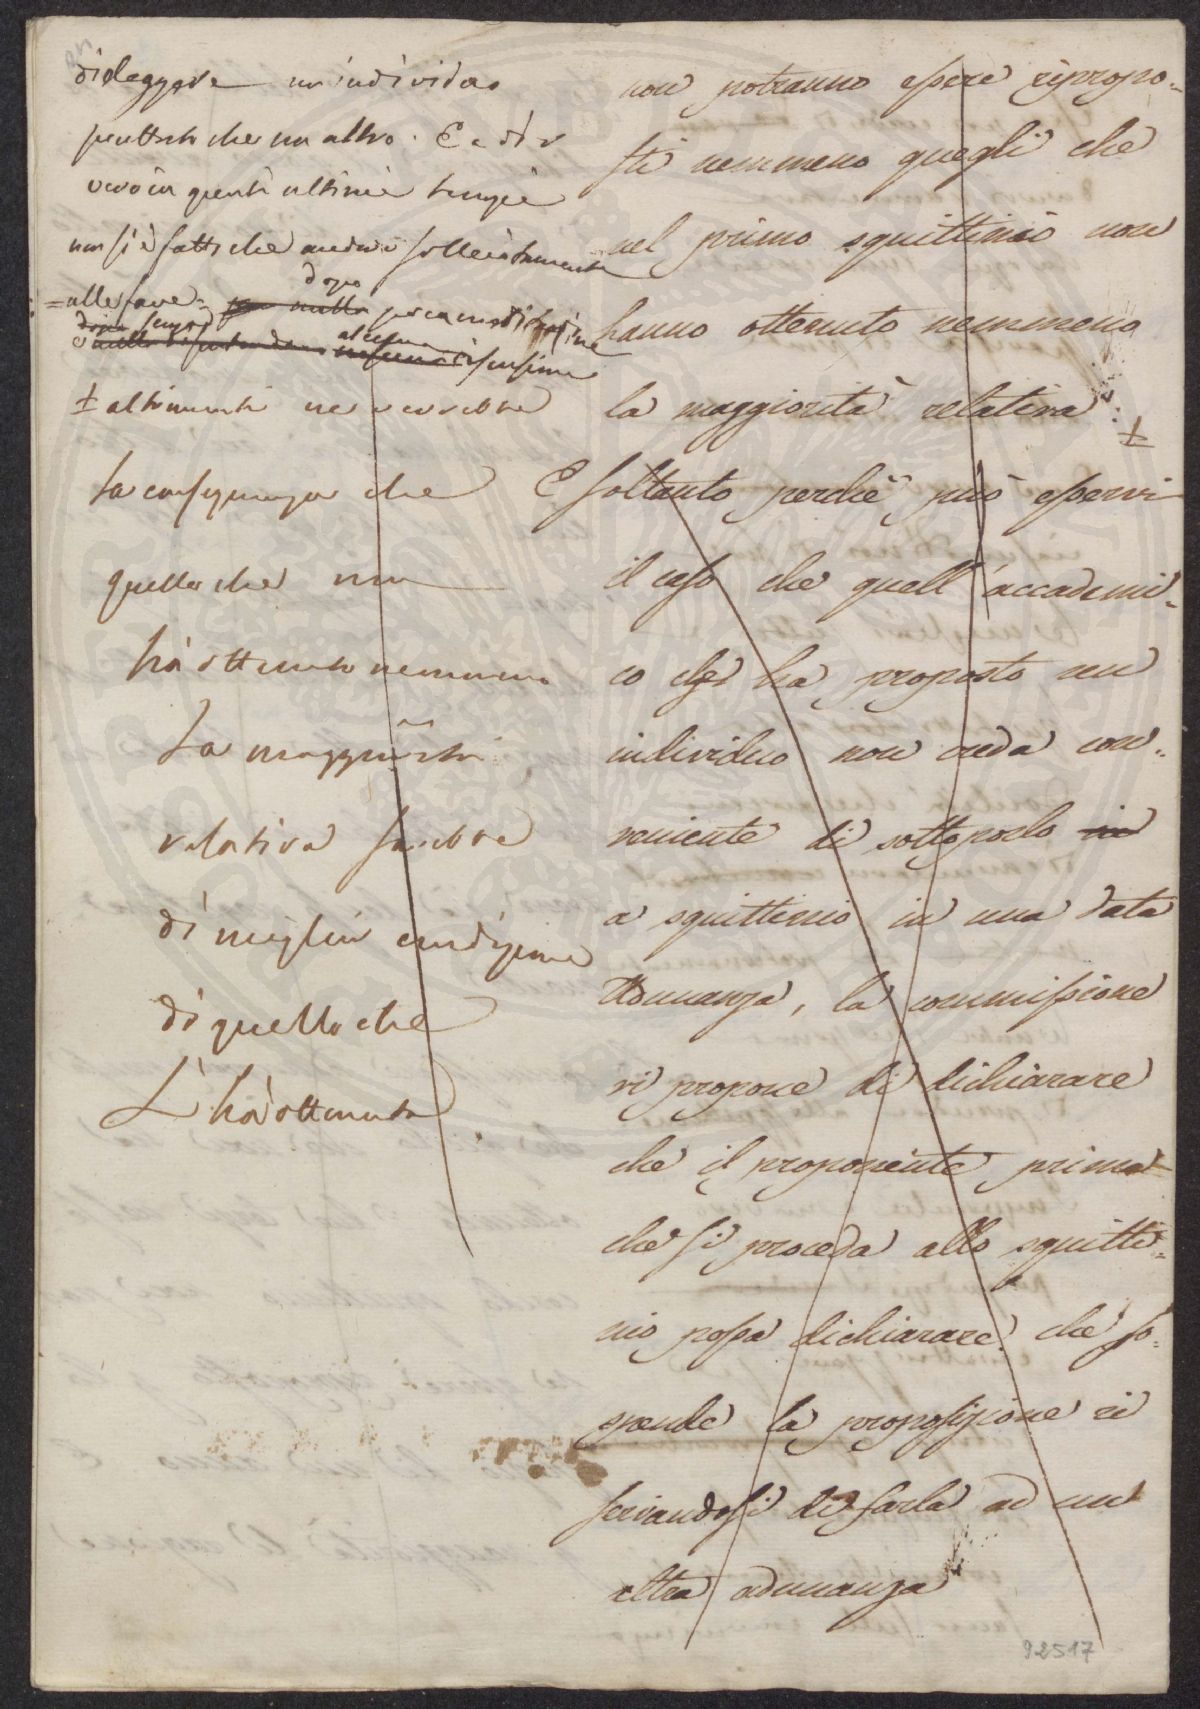 di eleggere un individuo
piuttosto che un altro. E a dir
vero in questi ultimi tempi
non si è fatto che andare sollecitamente
alle fave =
dopo
poca
dopo
alcuna
nessuna discussione
± altrimenti ne verrebbe
la conseguenza che
quello che non
ha ottenuto nemmeno
la maggiorità
relativa sarebbe
di miglior condizione
di quello che
l'hà ottenuta
non potranno essere ripropo=
sti nemmeno quegli che
nel primo squittinio non
hanno ottenuto nemmeno
la maggiorità relativa. ±
E soltanto perchè può esservi
il caso che quell'accademi=
co che ha proposto un
individuo non creda con=
veniente di sottoporlo in
a squittinio in una data
Adunanza, la commissione
vi propone di dichiarare
che il proponente prima
che si proceda allo squitti=
nio possa dichiarare, che so=
spende la proposizione ri
servandosi di farla ad un
altra adunanza
92517